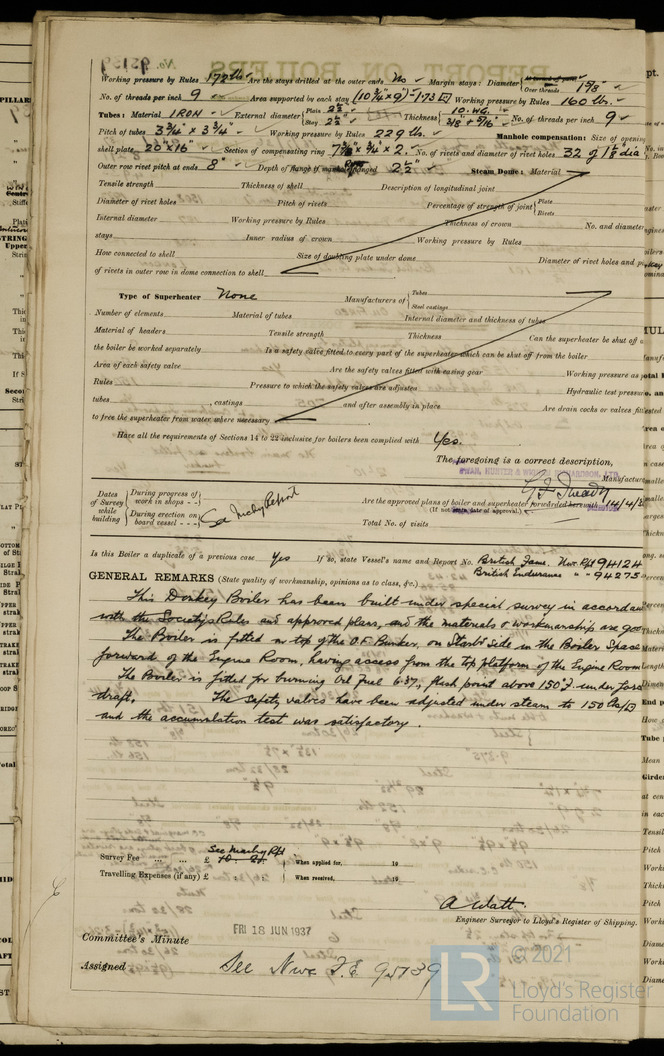 Working pressure by Rules 172 lbs Are the stays drilled at the outer ends No Margin stays: Diameter { At bottom of thread Over threads 1 5/8"
No. of threads per inch 9 Area supported by each stay (10 3/4" x 9") = 1·73 Working pressure by Rules 160 lbs.
Tubes: Material IRON External diameter { Plain 2 1/2" Stay 2 1/2" Thickness { 10. WG. 3/8 + 5/16" No. of threads per inch 9
Pitch of tubes 3 3/4" x 3 3/4" Working pressure by Rules 229 lbs. Manhole compensation: Size of opening
shell plate 20" x 16" Section of compensating ring No. of rivets and diameter of rivet holes 32 of 1 1/8" dia
Outer row rivet pitch at ends 8" Depth of flange if manhole flanged 2 1/2" Steam Dome: Material
Tensile strength Thickness of shell Description of longitudinal joint
Diameter of rivet holes Pitch of rivets Percentage of strength of joint { Plate Rivets
Internal diameter Working pressure by Rules Thickness of crown No. and diameter
stays Inner radius of crown Working pressure by Rules
How connected to shell Size of doubling plate under dome Diameter of rivet holes and
of rivets in outer row in dome connection to shell
Type of Superheater None Manufacturers of { Tubes Steel castings
Number of elements Material of tubes Internal diameter and thickness of tubes
Material of headers Tensile strength Thickness Can the superheater be shut off
the boiler be worked separately Is a safety valve fitted to every part of the superheater which can be shut off from the boiler
Area of each safety valve Are the safety valves fitted with easing gear Working pressure as
Rules Pressure to which the safety valves are adjusted Hydraulic test pressure
tubes , castings and after assembly in place Are drain cocks or valves fitted
to free the superheater from water where necessary
Have all the requirements of Sections 14 to 22 inclusive for boilers been complied with Yes.
The foregoing is a correct description,
SWAN, HUNTER & RICHARDSON, LTD.
Manufact
Dates of Survey while building { During progress of work in shops - - During erection on board vessel - - - See Mchy Report
Are the approved plans of boiler and superheater forwarded herewith 14/4/3
(If not state date of approval.)
Total No. of visits
Is this Boiler a duplicate of a previous case Yes If so, state Vessel's name and Report No. British Fame Nwc Rpt 94124
British Endurance " - 94275
GENERAL REMARKS (State quality of workmanship, opinions as to class, &c.)
This Donkey Boiler has been built under special survey in accordan
with the Society's Rules and approved plans, and the materials & workmanship are goo
The Boiler is fitted on top of the O.F. Bunker, on Starbd Side in the Boiler Space
forward of the Engine Room, having access from the top platform of the Engine Room
The Boiler is fitted for burning Oil Fuel 6·37, flash point above 150°F under forc
draft. The safety valves have been adjusted under steam to 150 lbs/
and the accumulation test was satisfactory.
Survey Fee ... ... £ See Machy Rpt When applied for, 19
Travelling Expenses (if any) £ When received, 19
A Watt.
Engineer Surveyor to Lloyd's Register of Shipping.
FRI 18 JUN 1937
Committee's Minute
Assigned See Nwc F.E. 95739
LR © 2021
Lloyd's Register
Foundation